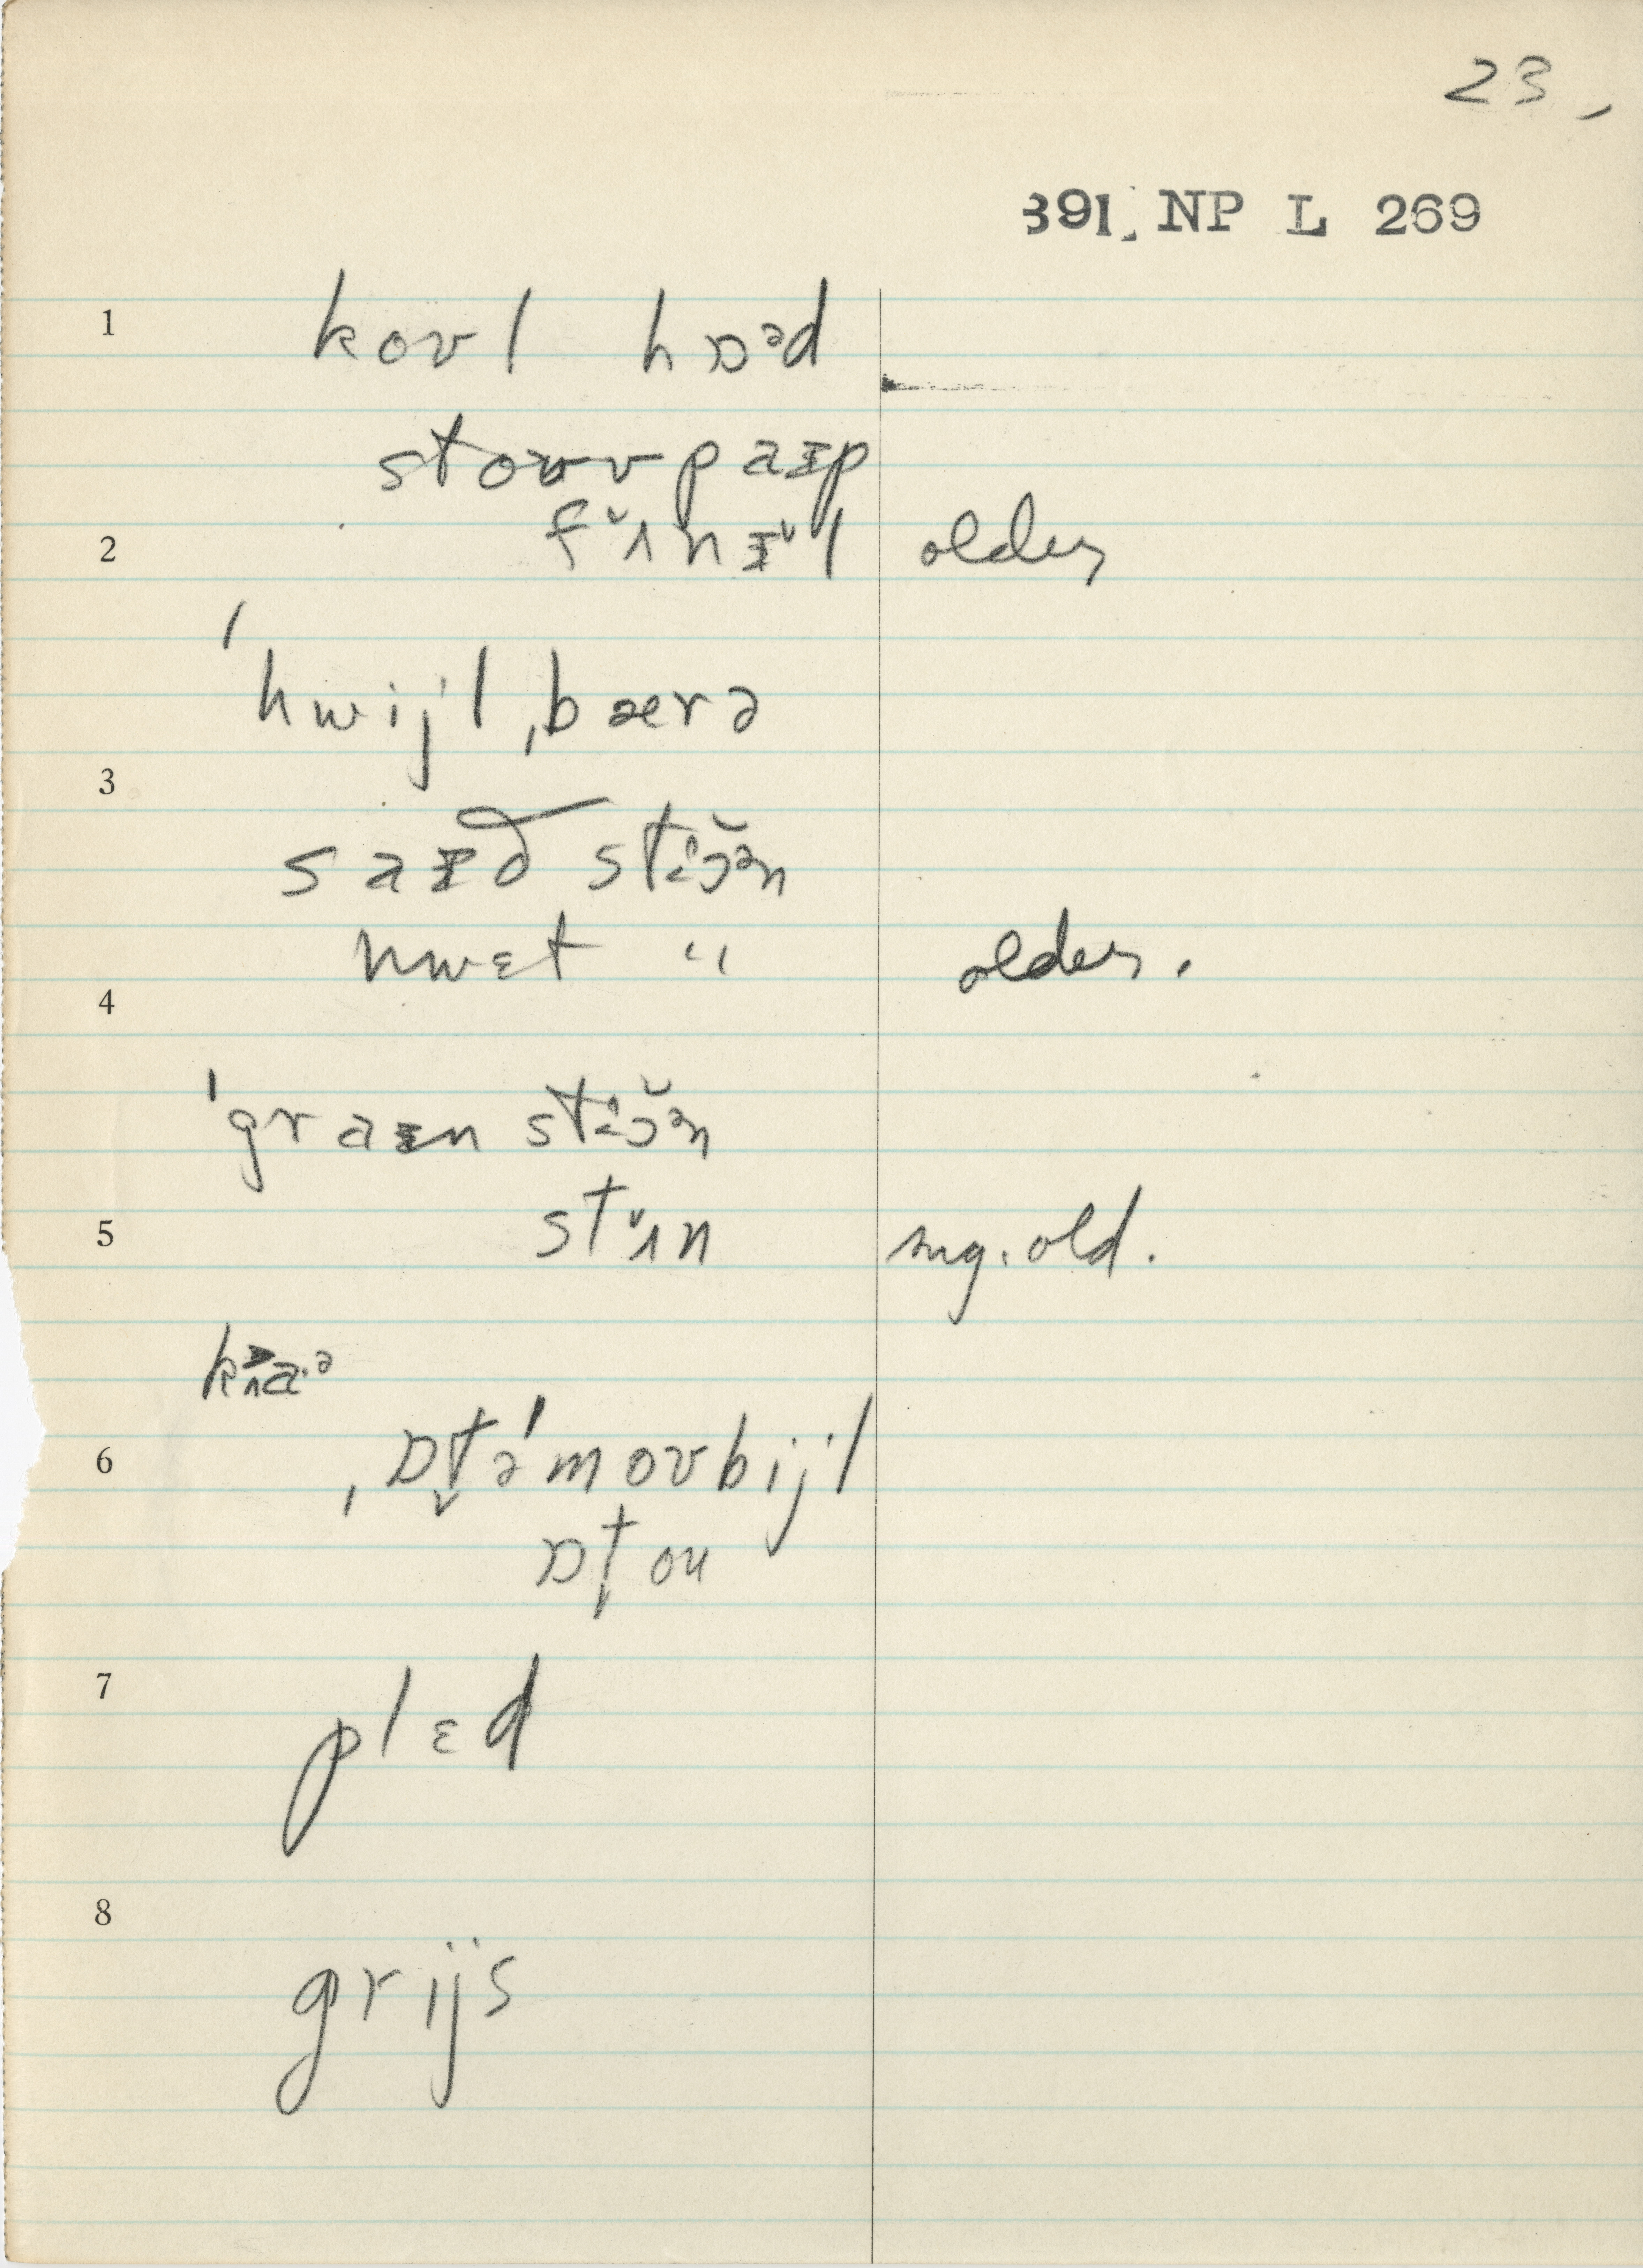 23,
391. NP L 269
1
koʊl hɒᵊd
stoʊvpaɪp
2
fʌ̆nɪ̆l older
ˈhwijlˌbærə
3
saɪð stɔ̆ᵊn
hwɛt " older.
4
ˈgraɪn stɔ̆ᵊn
5
stʌ̆n sug. old.
kʌa·ᵊ
6
ˌɒt̬əˈmoʊbijl
ɒtou
7
plɛd
8
grijs